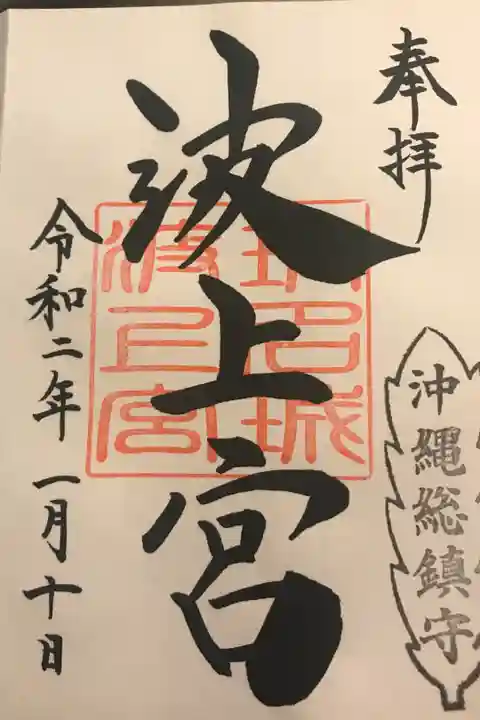 奉拝
沖縄総鎮守
波上宮
波上宮
令和二年一月十日